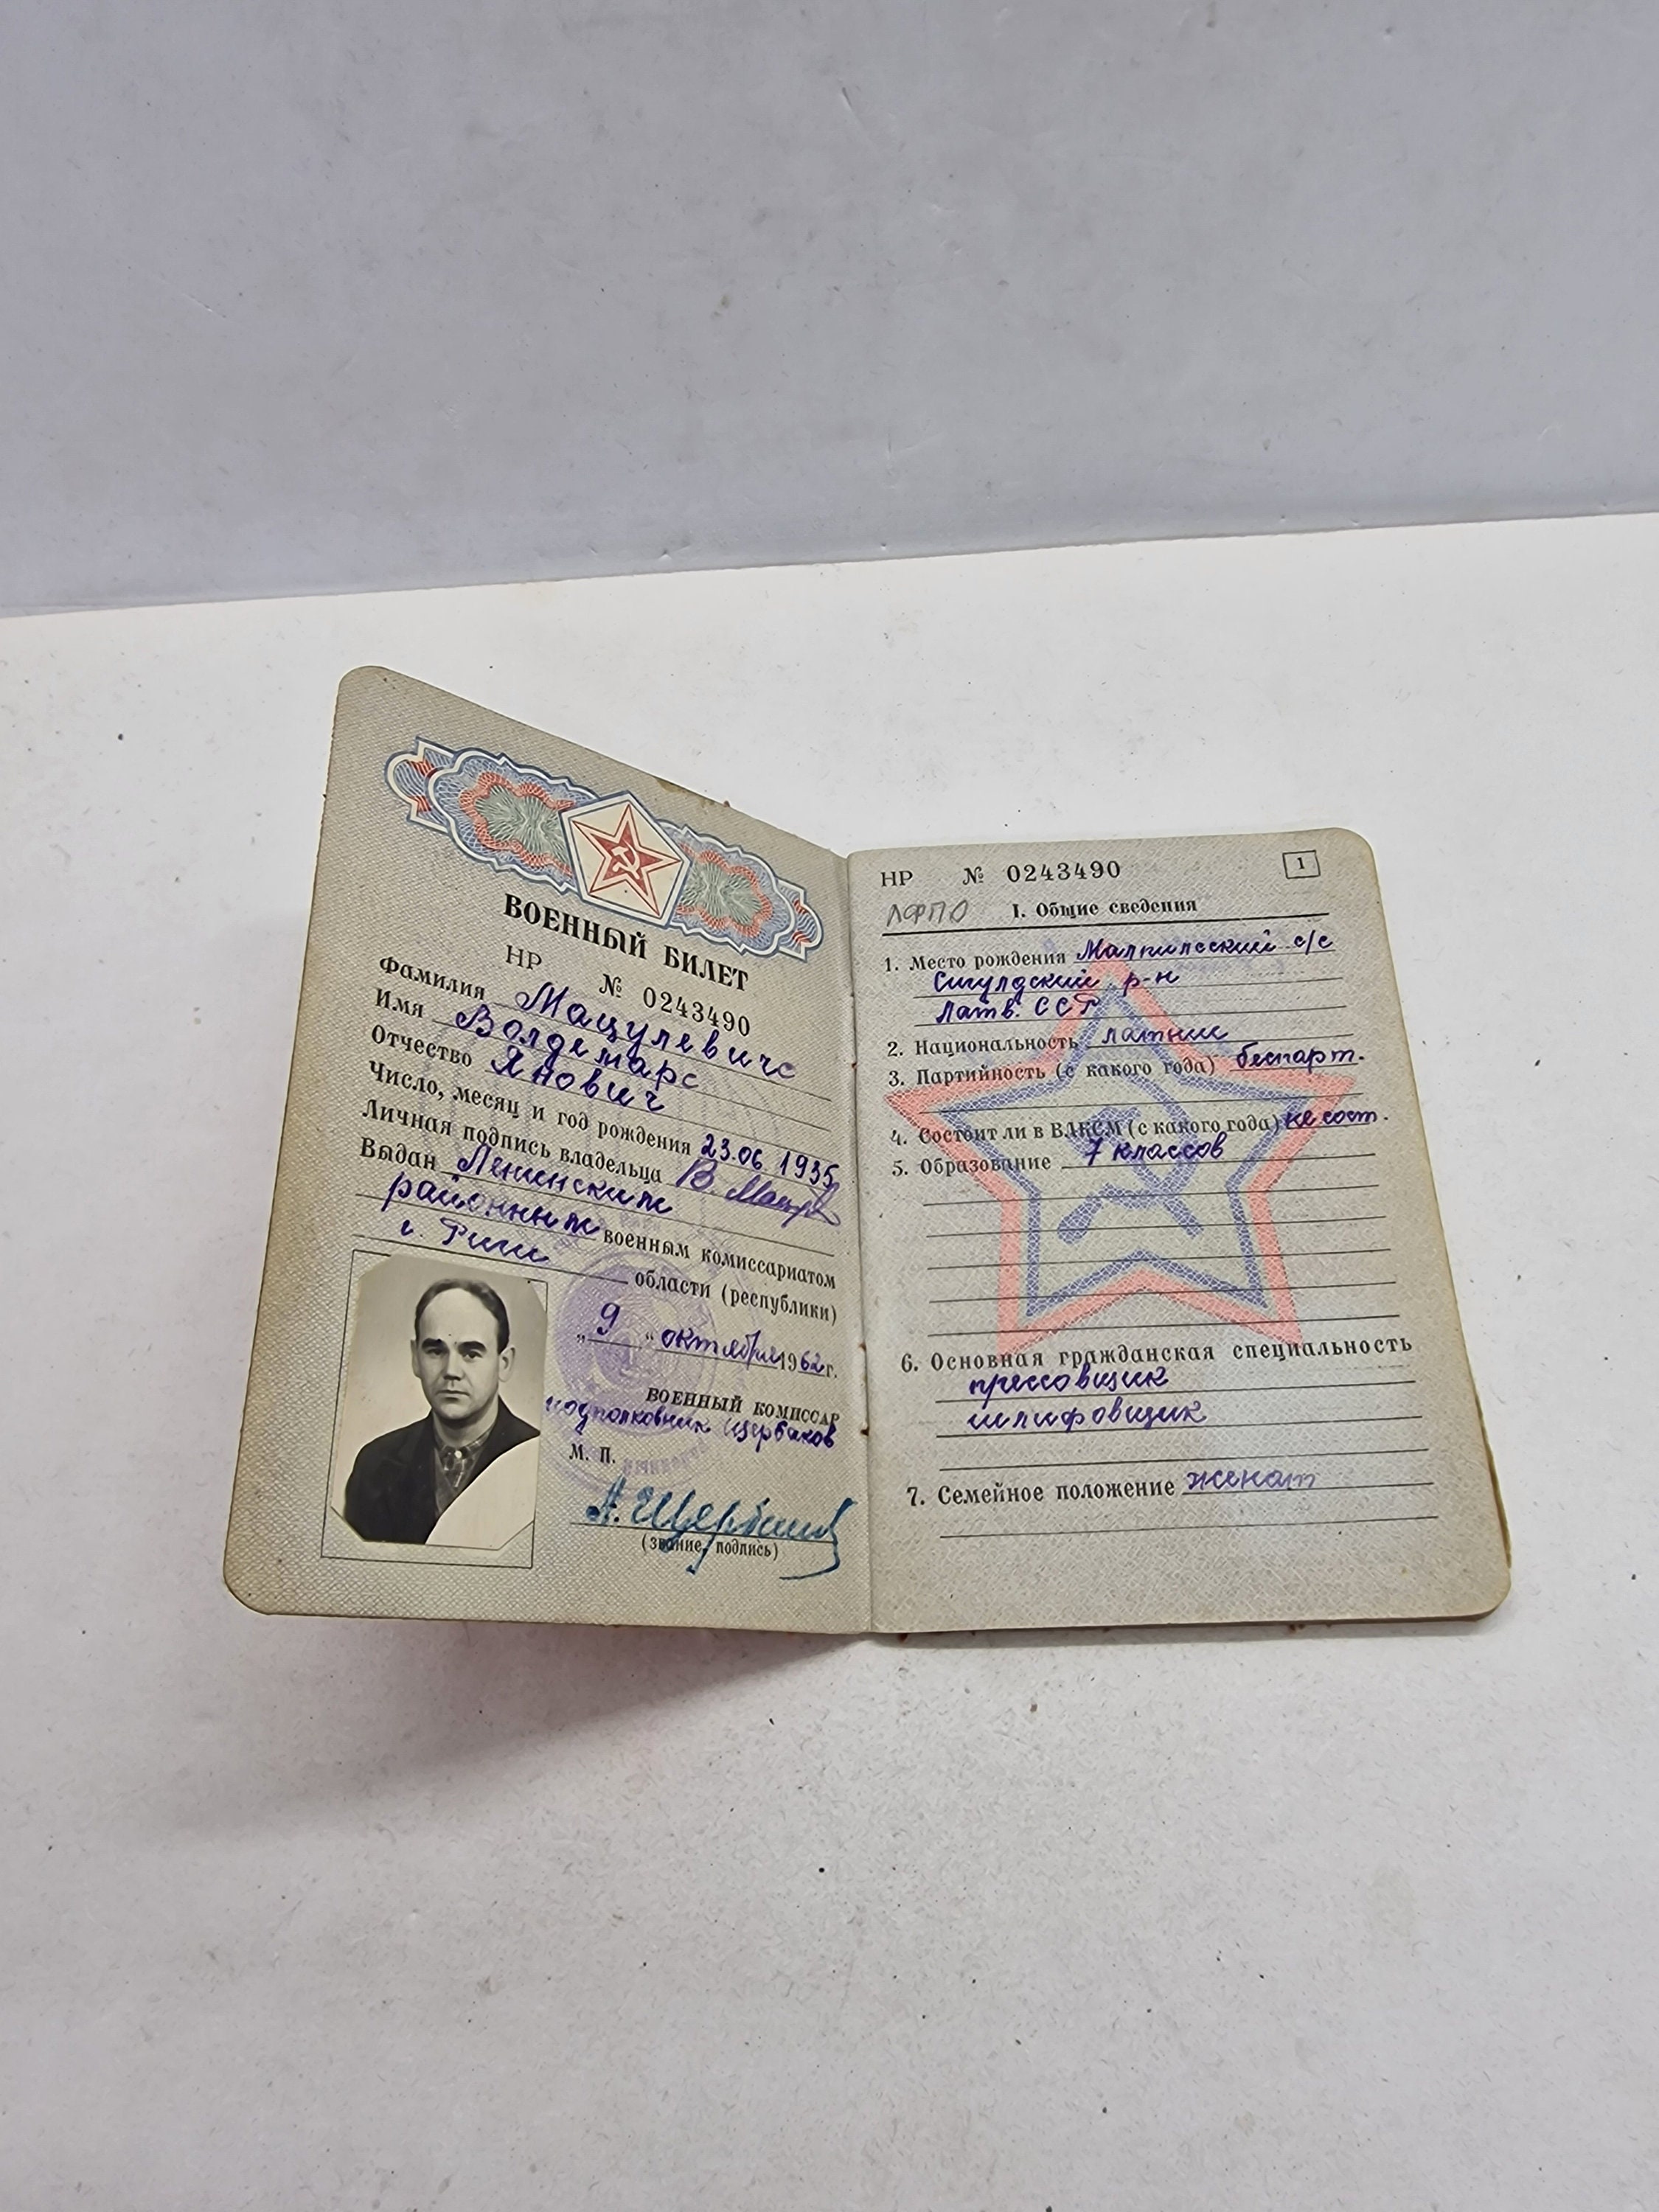 ВОЕННЫЙ БИЛЕТ
НР № 0243490
Фамилия Мацулевичс
Имя Волдемарс
Отчество Янович
Число, месяц и год рождения 23.06 1935
Личная подпись владельца В. Мацу
Выдан Ленинским
районным военным комиссариатом
г. Риги области (республики)
„9“ октября 1962 г.
ВОЕННЫЙ КОМИССАР
подполковник Щербаков
М. П.
А. Щербаков
(звание, подпись)
НР № 0243490
1
ЛФПО I. Общие сведения
1. Место рождения Малпилсский с/с
Сигулдский р-н
Латв. ССР
2. Национальность латыш
3. Партийность (с какого года) беспарт.
4. Состоит ли в ВЛКСМ (с какого года) не сост.
5. Образование 7 классов
6. Основная гражданская специальность
прессовщик
шлифовщик
7. Семейное положение женат